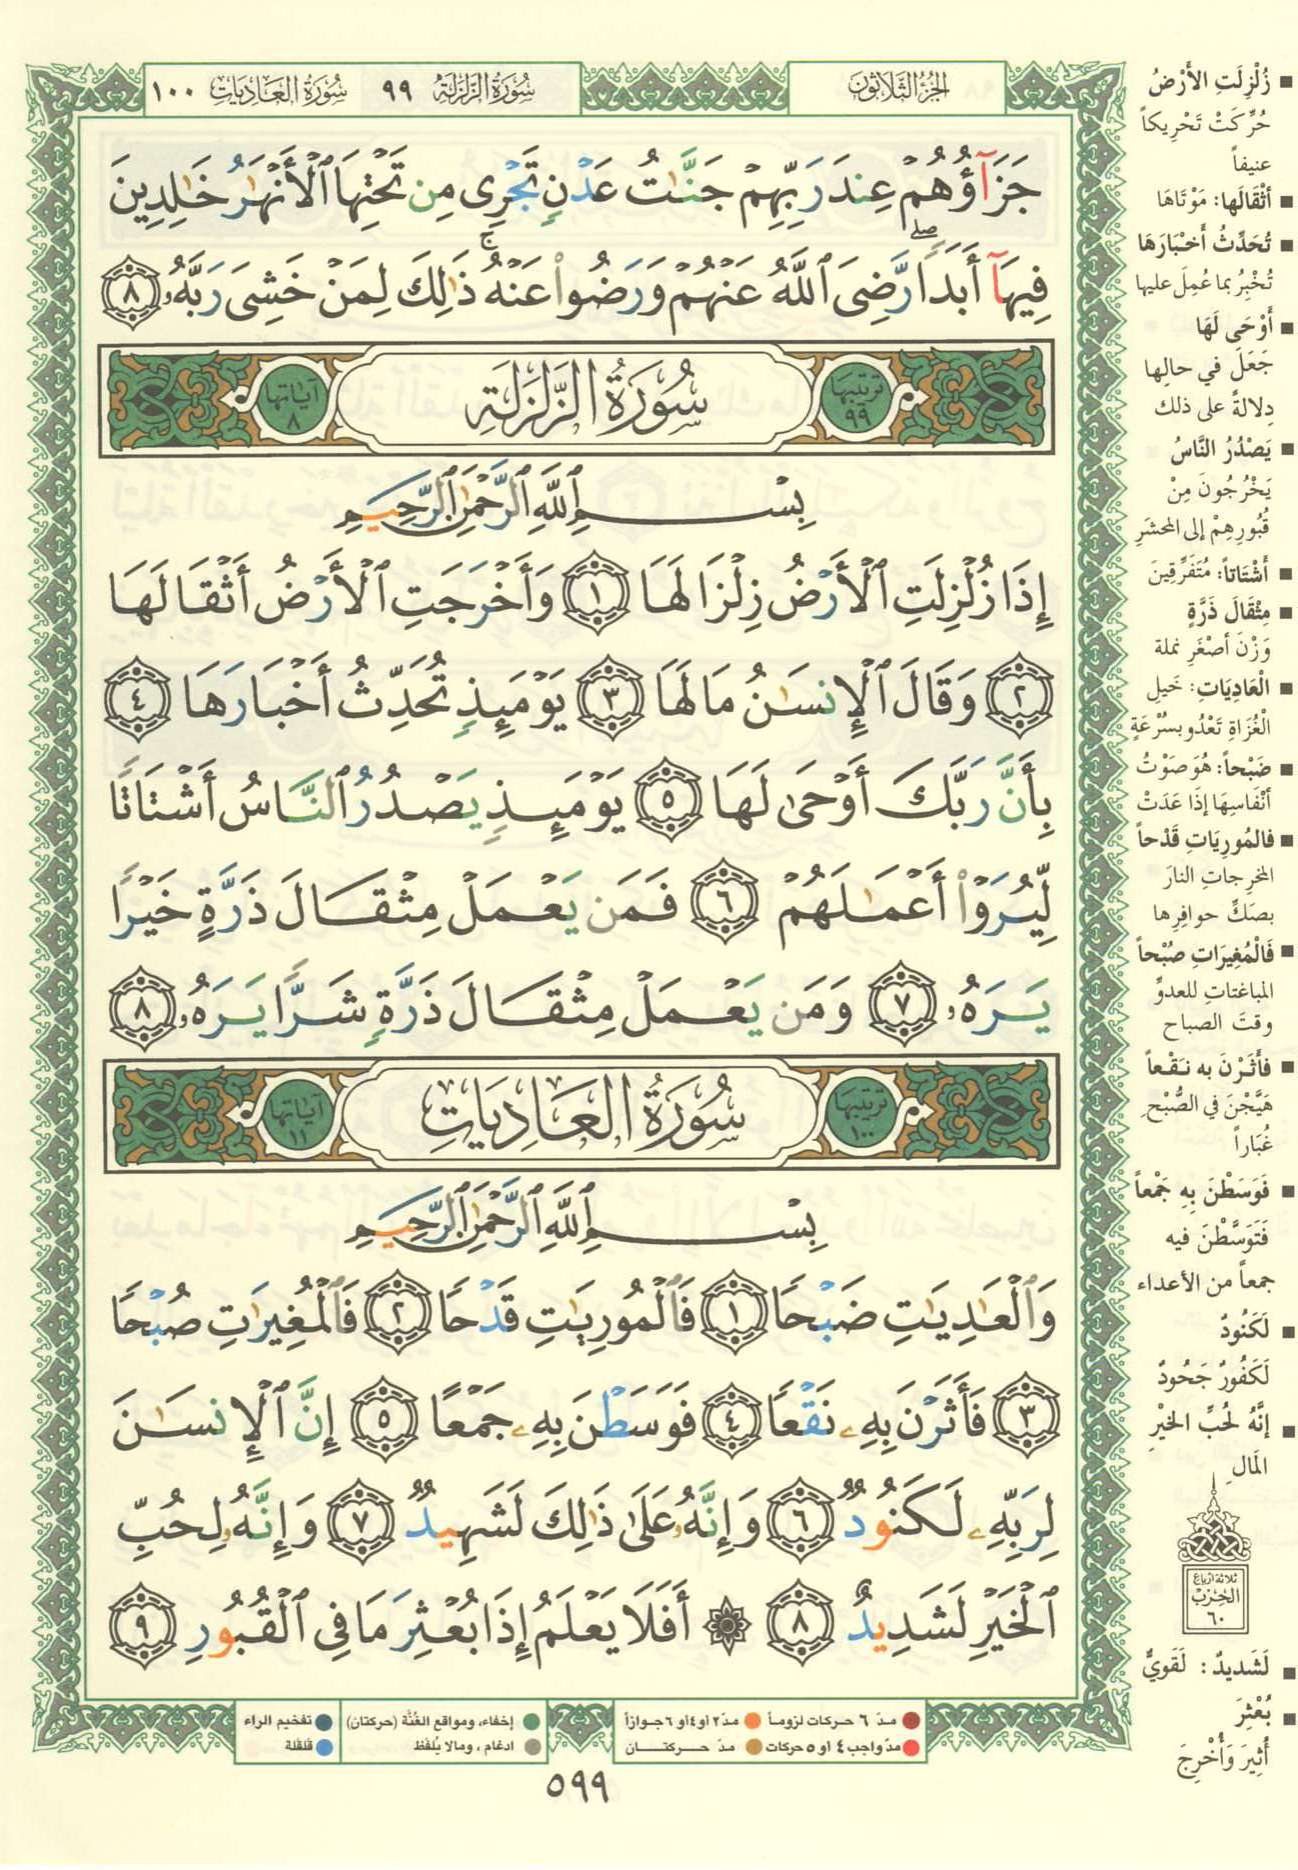 الجزء الثلاثون
سورة الزلزلة ٩٩ سورة العاديات ١٠٠
جَزَآؤُهُمْ عِندَ رَبِّهِمْ جَنَّٰتُ عَدْنٍ تَجْرِى مِن تَحْتِهَا ٱلْأَنْهَٰرُ خَٰلِدِينَ
فِيهَآ أَبَدًا ۖ رَّضِىَ ٱللَّهُ عَنْهُمْ وَرَضُوا۟ عَنْهُ ۚ ذَٰلِكَ لِمَنْ خَشِىَ رَبَّهُۥ ٨
ترتيبها ٩٩ سُورَةُ الزَّلْزَلَةِ آياتها ٨
بِسْمِ ٱللَّهِ ٱلرَّحْمَٰنِ ٱلرَّحِيمِ
إِذَا زُلْزِلَتِ ٱلْأَرْضُ زِلْزَالَهَا ١ وَأَخْرَجَتِ ٱلْأَرْضُ أَثْقَالَهَا
٢ وَقَالَ ٱلْإِنسَٰنُ مَا لَهَا ٣ يَوْمَئِذٍ تُحَدِّثُ أَخْبَارَهَا ٤
بِأَنَّ رَبَّكَ أَوْحَىٰ لَهَا ٥ يَوْمَئِذٍ يَصْدُرُ ٱلنَّاسُ أَشْتَاتًا
لِّيُرَوْا۟ أَعْمَٰلَهُمْ ٦ فَمَن يَعْمَلْ مِثْقَالَ ذَرَّةٍ خَيْرًا
يَرَهُۥ ٧ وَمَن يَعْمَلْ مِثْقَالَ ذَرَّةٍ شَرًّا يَرَهُۥ ٨
ترتيبها ١٠٠ سُورَةُ الْعَادِيَاتِ آياتها ١١
بِسْمِ ٱللَّهِ ٱلرَّحْمَٰنِ ٱلرَّحِيمِ
وَٱلْعَٰدِيَٰتِ ضَبْحًا ١ فَٱلْمُورِيَٰتِ قَدْحًا ٢ فَٱلْمُغِيرَٰتِ صُبْحًا
٣ فَأَثَرْنَ بِهِۦ نَقْعًا ٤ فَوَسَطْنَ بِهِۦ جَمْعًا ٥ إِنَّ ٱلْإِنسَٰنَ
لِرَبِّهِۦ لَكَنُودٌ ٦ وَإِنَّهُۥ عَلَىٰ ذَٰلِكَ لَشَهِيدٌ ٧ وَإِنَّهُۥ لِحُبِّ
ٱلْخَيْرِ لَشَدِيدٌ ٨ ۞ أَفَلَا يَعْلَمُ إِذَا بُعْثِرَ مَا فِى ٱلْقُبُورِ ٩
زُلْزِلَتِ الأَرْضُ
حُرِّكَتْ تَحْرِيكاً
عنيفاً
أثْقَالَها: مَوْتَاهَا
تُحَدِّثُ أَخْبَارَهَا
تُخْبِرُ بما عُمِلَ عليها
أَوْحَى لَهَا
جَعَلَ في حالِها
دِلالةً على ذلك
يَصْدُرُ النَّاسُ
يَخْرُجُونَ مِنْ
قُبُورِهِمْ إلى المحشرِ
أَشْتَاتاً: مُتَفَرِّقِينَ
مِثْقَالَ ذَرَّةٍ
وَزْنَ أصْغَرِ نملة
الْعَادِيَاتِ: خَيلِ
الْغُزَاةِ تَعْدُو بسُرْعَةٍ
ضَبْحاً: هُوَ صَوْتُ
أنْفَاسِهَا إذَا عَدَتْ
فالمُورِيَاتِ قَدْحاً
المخرِجاتِ النارَ
بصَكِّ حوافِرِها
فَالْمُغِيرَاتِ صُبْحاً
المباغتاتِ للعدوِّ
وقتَ الصباح
فأَثَرْنَ به نَقْعاً
هَيَّجْنَ في الصُّبْحِ
غُبَاراً
فَوَسَطْنَ بِهِ جَمْعاً
فَتَوَسَّطْنَ فيه
جمعاً من الأعداء
لَكَنُودٌ
لَكَفُورٌ جَحُودٌ
إنَّهُ لحُبِّ الخيْرِ
المَالِ
ثلاثة أرباع
الحزب
٦٠
لَشَديدٌ: لَقَويٌّ
بُعْثِرَ
أُثِيرَ وَأُخْرِجَ
مدّ ٦ حركات لزوماً مدّ ٢ أو ٤ أو ٦ جوازاً إخفاء، ومواقع الغُنَّة (حركتان) تفخيم الراء
مدّ واجب ٤ أو ٥ حركات مدّ حركتان ادغام، ومالا يُلفظ قلقلة
٥٩٩